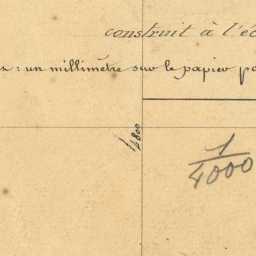 construit à l'éc
: un millimètre sur le papier po
1/800
1/4000